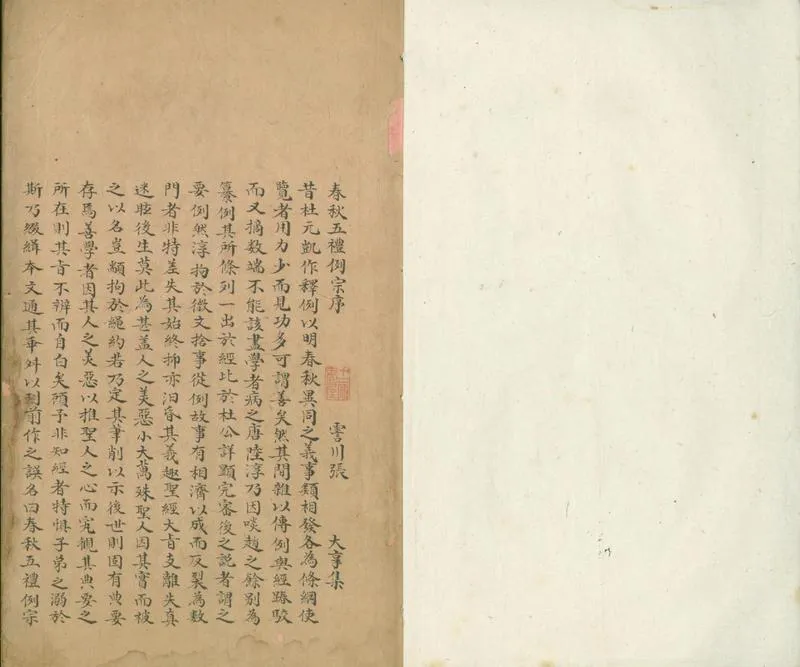 春秋五禮例宗序
霅川張 大亨集
昔杜元凱作釋例以明春秋異同之義事類相發各為條綱使
覽者用力少而見功多可謂善矣然其間雜以傳例與經踳駮
而又摘數端不能該盡學者病之唐陸淳乃因啖趙之餘別為
纂例其所條列一出於經比於杜公詳顯完審後之説者謂之
要例然淳拘於微文捨事從例故事有相濟以成而反裂為數
門者非特差失其始終抑亦汩昏其義趣聖經大旨支離失真
迷眩後生莫此為甚盖人之美惡小大萬殊聖人因其實而被
之以名豈顓拘於繩約若乃定其筆削以示後世則固有典要
存焉善學者因其人之美惡以推聖人之心而究觀其典要之
所在則其旨不辨而自白矣顧予非知經者特惧子弟之溺於
斯乃綴緝本文通其乖舛以刬前作之誤名曰春秋五禮例宗